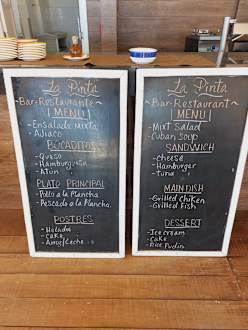 La Pinta
Bar-Restaurante
MENU
-Ensalada Mixta
-Ajiaco
BOCADITOS
-Queso
-Hamburguesa
-Atún
PLATO PRINCIPAL
-Pollo a la Plancha
-Pescado a la Plancha
POSTRES
-Helados
-Cake
-Arroz Leche
La Pinta
Bar-Restaurant
MENU
-Mixt Salad
-Cuban Soup
SANDWICH
-Cheese
-Hamburger
-Tuna
MAIN DISH
-Grilled Chiken
-Grilled Fish
DESSERT
-Ice cream
-Cake
-Rice Pudin